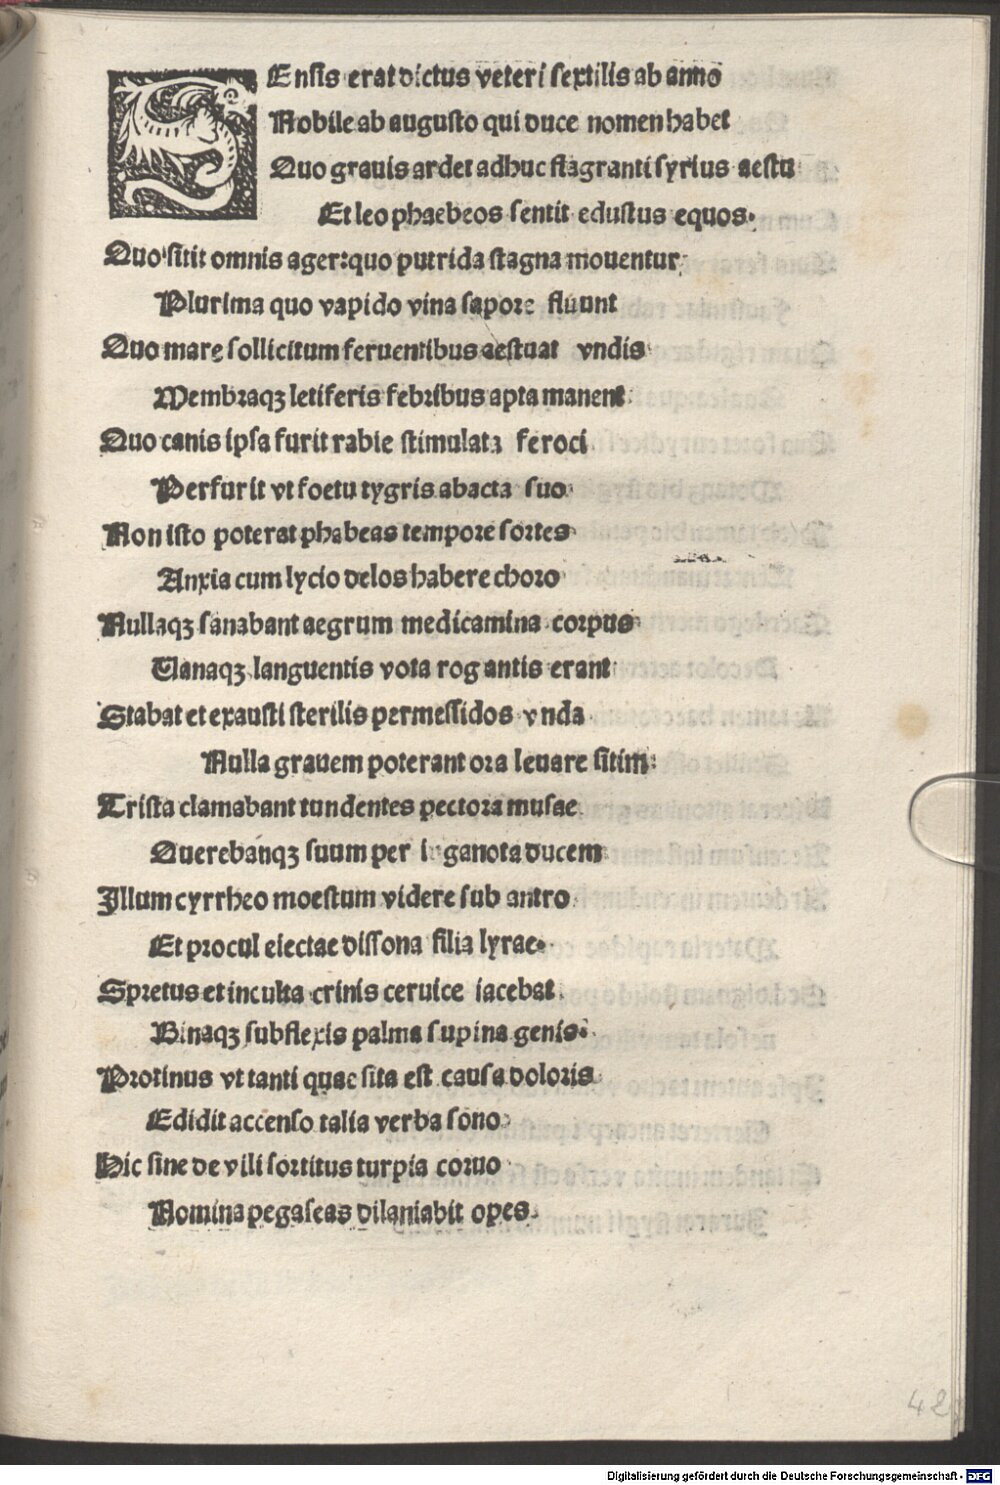 Ensis erat dictus veteri sextilis ab anno
Nobile ab augusto qui duce nomen habet
Quo grauis ardet adhuc flagranti syrius aestu
Et leo phaebeos sentit edustus equos.
Quo sitit omnis ager: quo putrida stagna mouentur
Plurima quo vapido vina sapore fluunt
Quo mare sollicitum feruentibus aestuat vndis
Membraqꝫ letiferis febribus apta manent
Quo canis ipsa furit rabie stimulata feroci
Perfurit vt foetu tygris abacta suo
Non isto poterat phabeas tempore sortes
Anxia cum lycio delos habere choro
Nullaqꝫ sanabant aegrum medicamina corpus
Uanaqꝫ languentis vota rogantis erant
Stabat et exausti sterilis permessidos vnda
Nulla grauem poterant ora leuare sitim
Trista clamabant tundentes pectora musae
Querebanqꝫ suum per ganota ducem
Illum cyrrheo moestum videre sub antro
Et procul eiectae dissona filia lyrae.
Spretus et inculta crinis ceruice iacebat
Binaqꝫ subflexis palma supina genis.
Protinus vt tanti quae sita est causa doloris
Edidit accenso talia verba sono
Hic sine de vili sortitus turpia coruo
Nomina pegaseas dilaniabit opes.
Digitalisierung gefördert durch die Deutsche Forschungsgemeinschaft - DFG